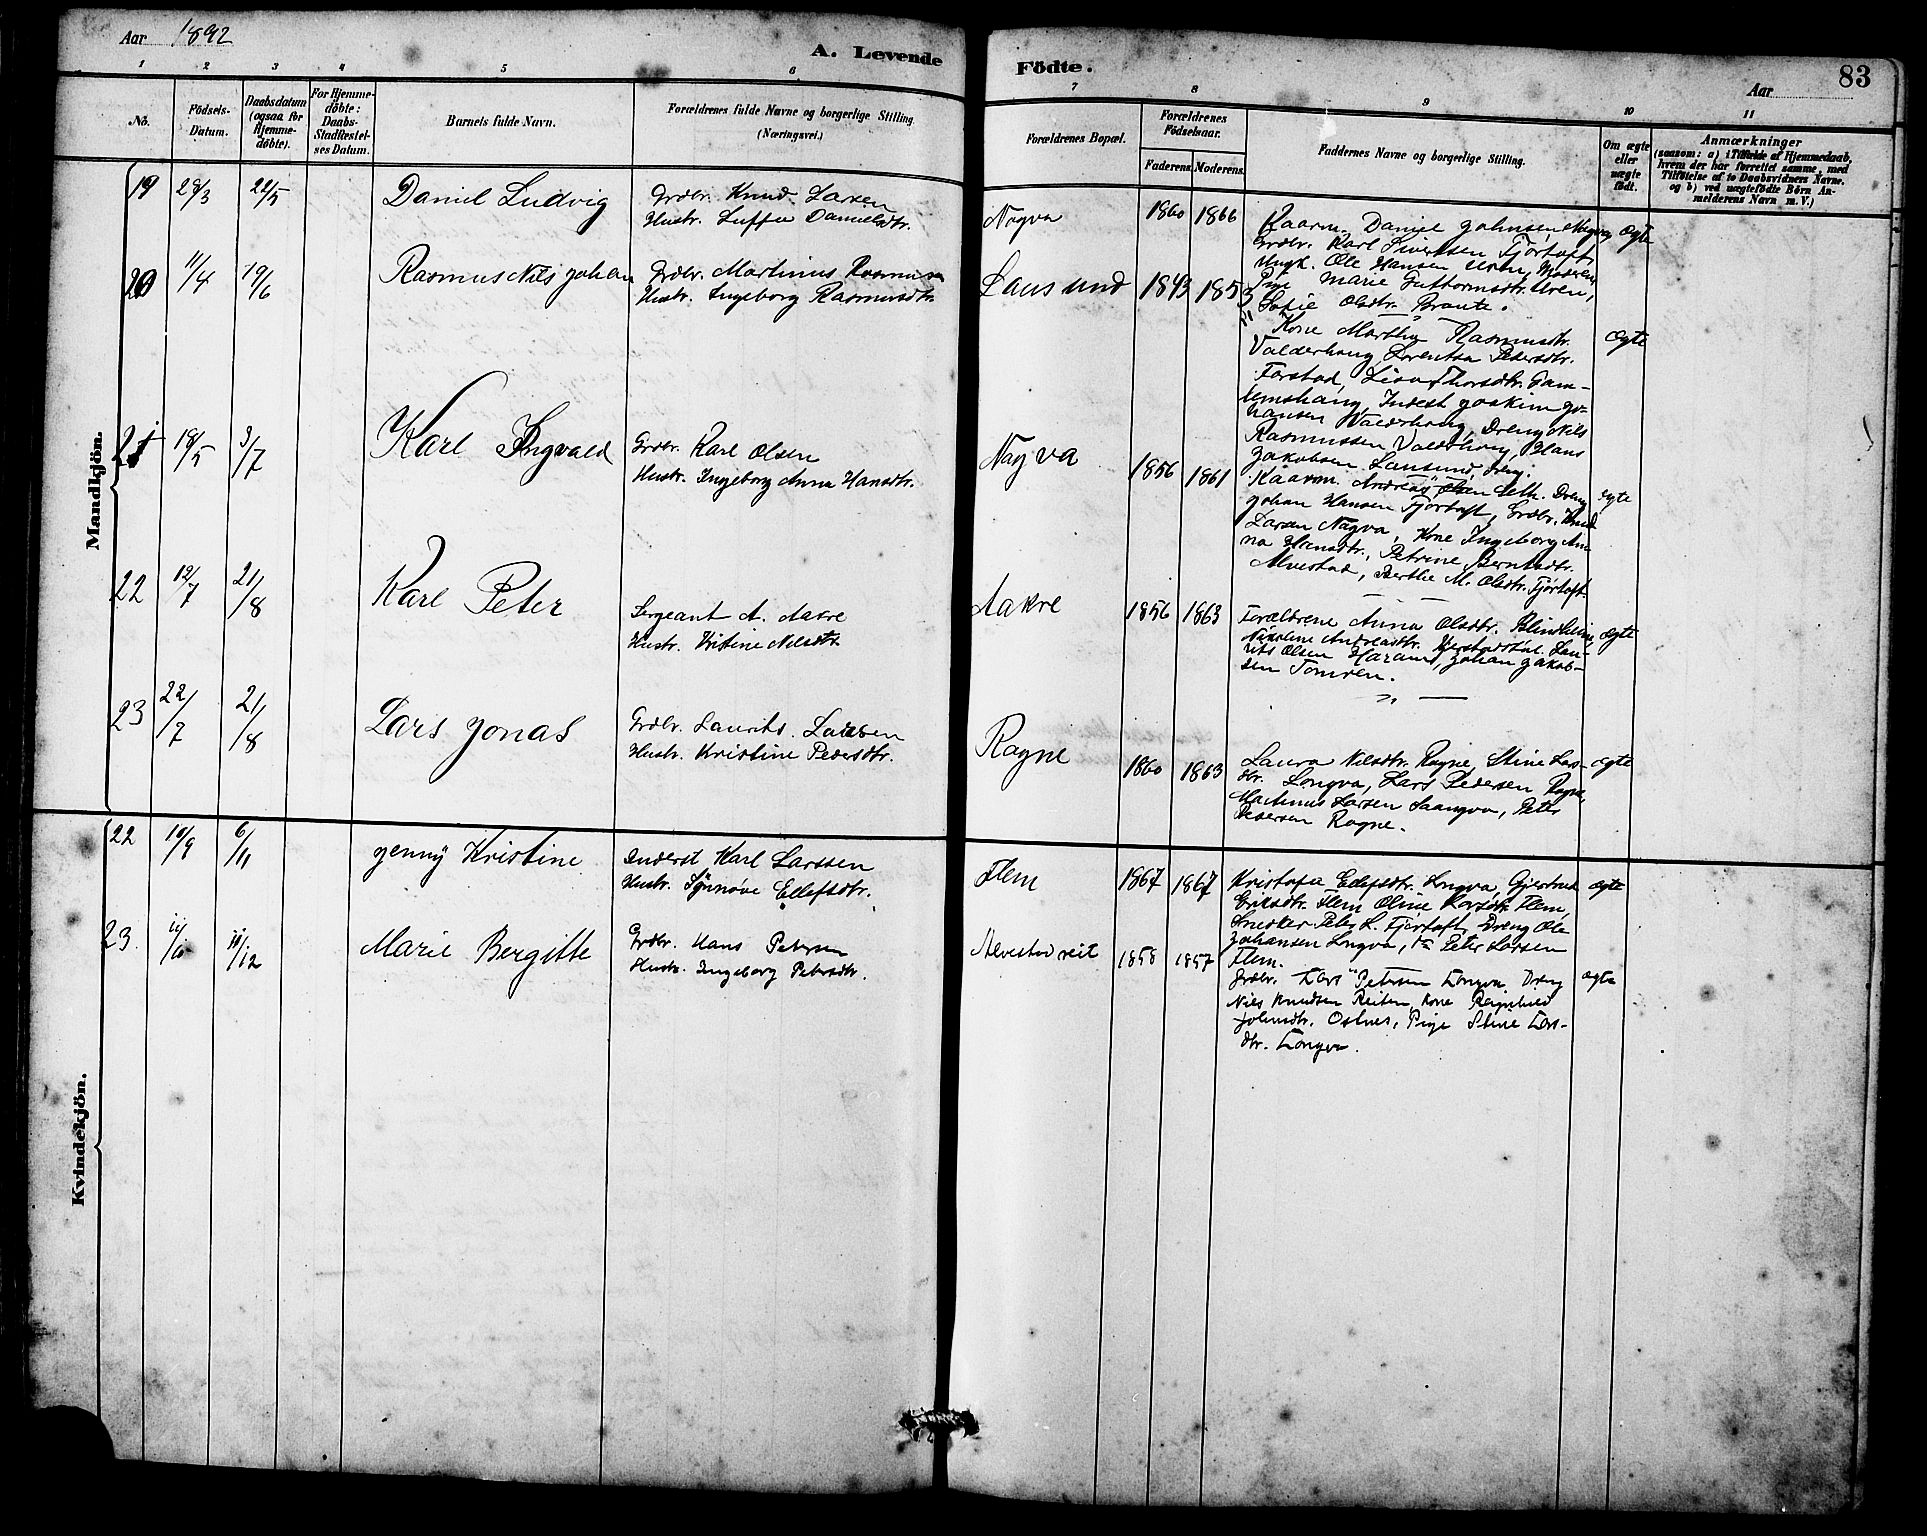 Aar 1892
A. Levende
Födte.
Aar
83
1 2 3 4 5 6 7 8 9 10 11
No.
Födsels-
Datum.
Daabsdatum
(ogsaa for
Hjemme-
döbte).
For Hjemme-
döbte:
Daabs-
Stadfæstel-
ses Datum.
Barnets fulde Navn.
Forældrenes fulde Navne og borgerlige Stilling
(Næringsvei.)
Forældrenes Bopæl.
Forældrenes
Födselsaar.
Faderens.
Moderens.
Faddernes Navne og borgerlige Stilling.
Om ægte
eller
uægte
födt.
Anmærkninger
(saasom: a) i Tilfælde af Hjemmedaab,
hvem der har forrettet samme, med
Tilföielse af to Daabsvidners Navne.
og b) ved uægtefödte Börn An-
melderens Navn m. V.)
Mandkjön.
19 28/3 22/5 Daniel Ludvig
Grdbr. Knud Larsen
Hustr. Danielsdtr.
Nogva 1860 1866
Kaarm. Daniel Johnsen ægte
Grdbr. Karl Sivertsen Fjörtoft,
Ungk. Ole Hansen Uren, Moderen,
Pige Marie Guttormsdtr. Uren,
Sofie Olsdtr. Braute.
20 11/4 19/6 Rasmus Nils Johan
Grdbr. Martinus Rasmussen
Hustr. Ingeborg Rasmusdtr.
Lausund 1843 1853
Kone Marthe Rasmusdtr. ægte
Valderhaug, Lorentsa Pedersdtr.
Farstad, Lisa Thorsdtr. Gam-
lemshaug, Inderst Joakim Jo-
hansen Valderhaug, Dreng Nils
Rasmussen Valderhaug, Hans
Jakobsen Lausund, Dreng.
21 18/5 3/7 Karl Ingvald
Grdbr. Karl Olsen
Hustr. Ingeborg Anna Hansdtr.
Nogva 1856 1861
Kaarm. Andreas Olsen Dreng ægte
Johan Hansen Fjörtoft, Grdbr. Knud
Larsen Nogva, Kone Ingeborg An-
na Hansdtr., Petrine Berntsdtr.
Alvestad, Berthe M. Olsdtr. Fjörtoft.
22 12/7 21/8 Karl Peter
Sergeant A. Aakre
Hustr. Kristine Nilsdtr.
Aakre 1856 1863
Forældrene Anna Olsdtr. Blindheim, ægte
Nikoline Andreasdtr. Lau-
rits Olsen Haram, Johan Jakob-
sen Tomren.
23 22/7 21/8 Lars Jonas
Grdbr. Laurits Larsen
Hustr. Kristine Pedersdtr.
Rogne 1860 1863
Laura Nilsdtr. Rogne, Stine Las- ægte
dtr. Longva, Lars Pedersen Rogne,
Martinus Larsen Laangva, Peter
Pedersen Rogne.
Kvindekjön.
22 19/9 6/11 Jenny Kristine
Inderst Karl Larssen
Hustr. Synnöve Ellefsdtr.
Flem 1867 1867
Kristofa Ellefsdtr. Longva, Gjertrud ægte
Eriksdtr. Flem, Oline Flem,
Snedker Peter L. Fjörtoft, Dreng Ole
Johansen Longva, Peter Larsen
Flem.
23. 11/10 11/12 Marie Bergitte
Grdbr. Hans Petersen
Hustr. Ingeborg Petersdtr.
Alvestadreit 1858 1857
Grdbr. Lars Petersen Longva, Dreng ægte
Nils Knudsen Reiten, Kone Ragnhild
Johnsdtr. Ostnes, Pige Stine Lars-
dtr. Longva.